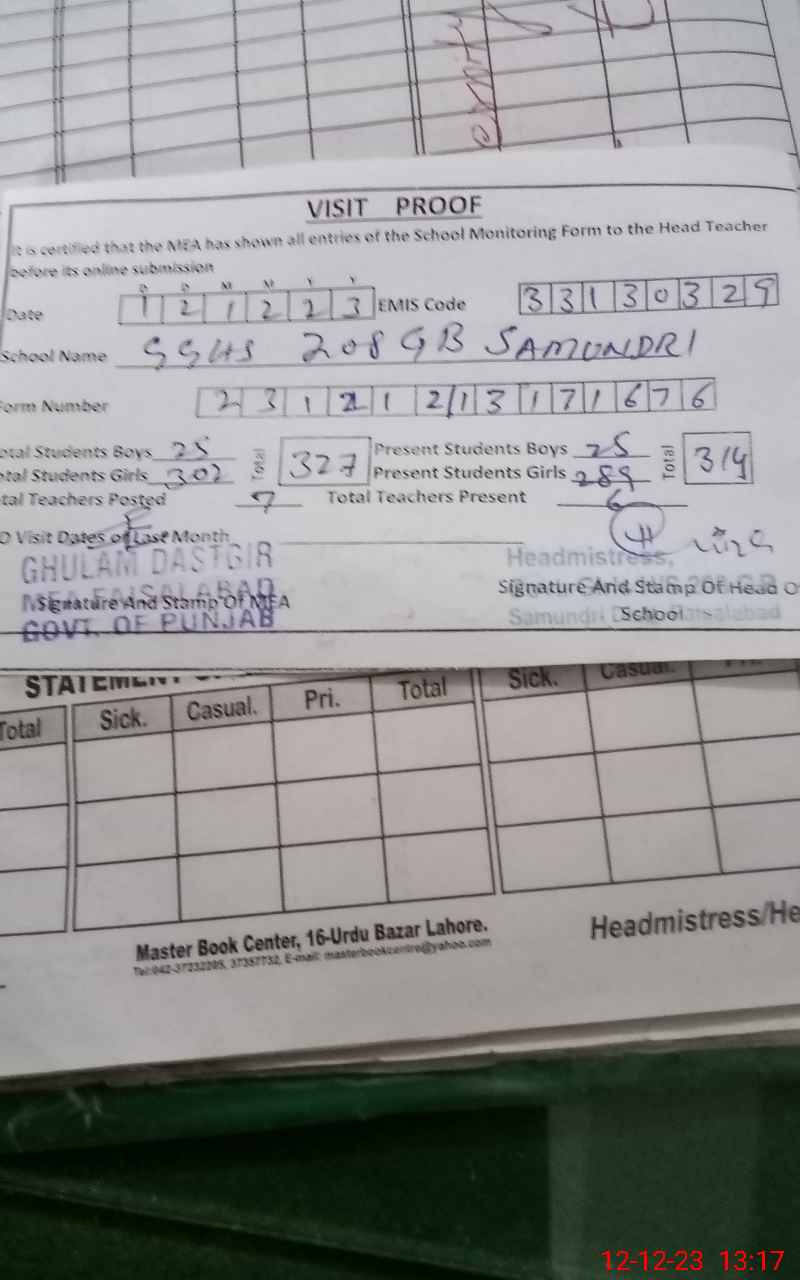 VISIT PROOF
It is certified that the MEA has shown all entries of the School Monitoring Form to the Head Teacher
before its online submission
D D M M Y Y
Date 1 2 1 2 2 3 EMIS Code 3 3 1 3 0 3 2 9
School Name GGHS 208 GB SAMUNDRI
Form Number 2 3 1 2 1 2 1 3 1 7 1 6 7 6
otal Students Boys 25 Total 327 Present Students Boys 25 Total 314
otal Students Girls 302 Present Students Girls 289
tal Teachers Posted 7 Total Teachers Present 6
O Visit Dates of Last Month
GHULAM DASTGIR Headmistress,
MEA FAISALABAD
Signature And Stamp Of MEA Signature And Stamp Of Head O
GOVT. OF PUNJAB Samundri School Faisalabad
STATEMENT
Total Sick. Casual. Pri. Total Sick. Casual. Pri.
Master Book Center, 16-Urdu Bazar Lahore. Headmistress/He
Tel:042-37232205, 37357732, E-mail: masterbookcentre@yahoo.com
12-12-23 13:17